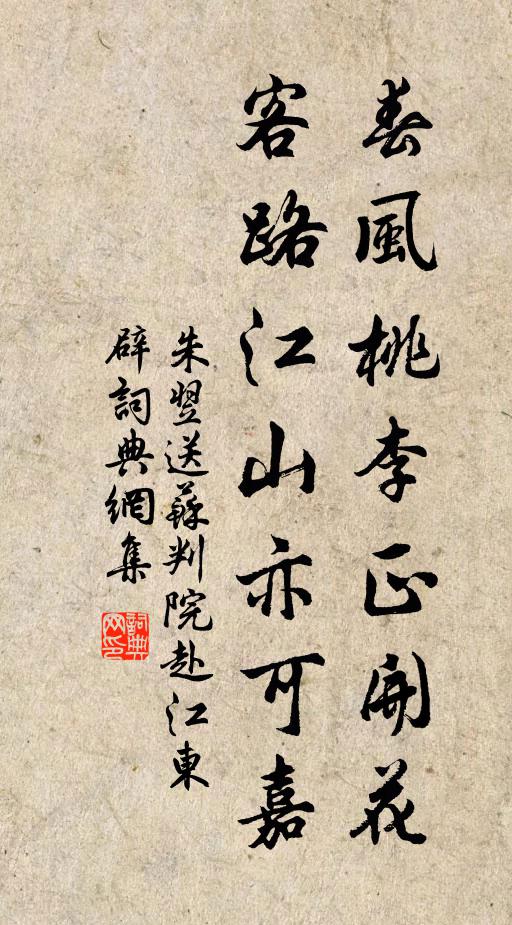 春風桃李正開花
客路江山亦可嘉
朱翌送蘇判院赴江東
辟詞典網集
詞典网印